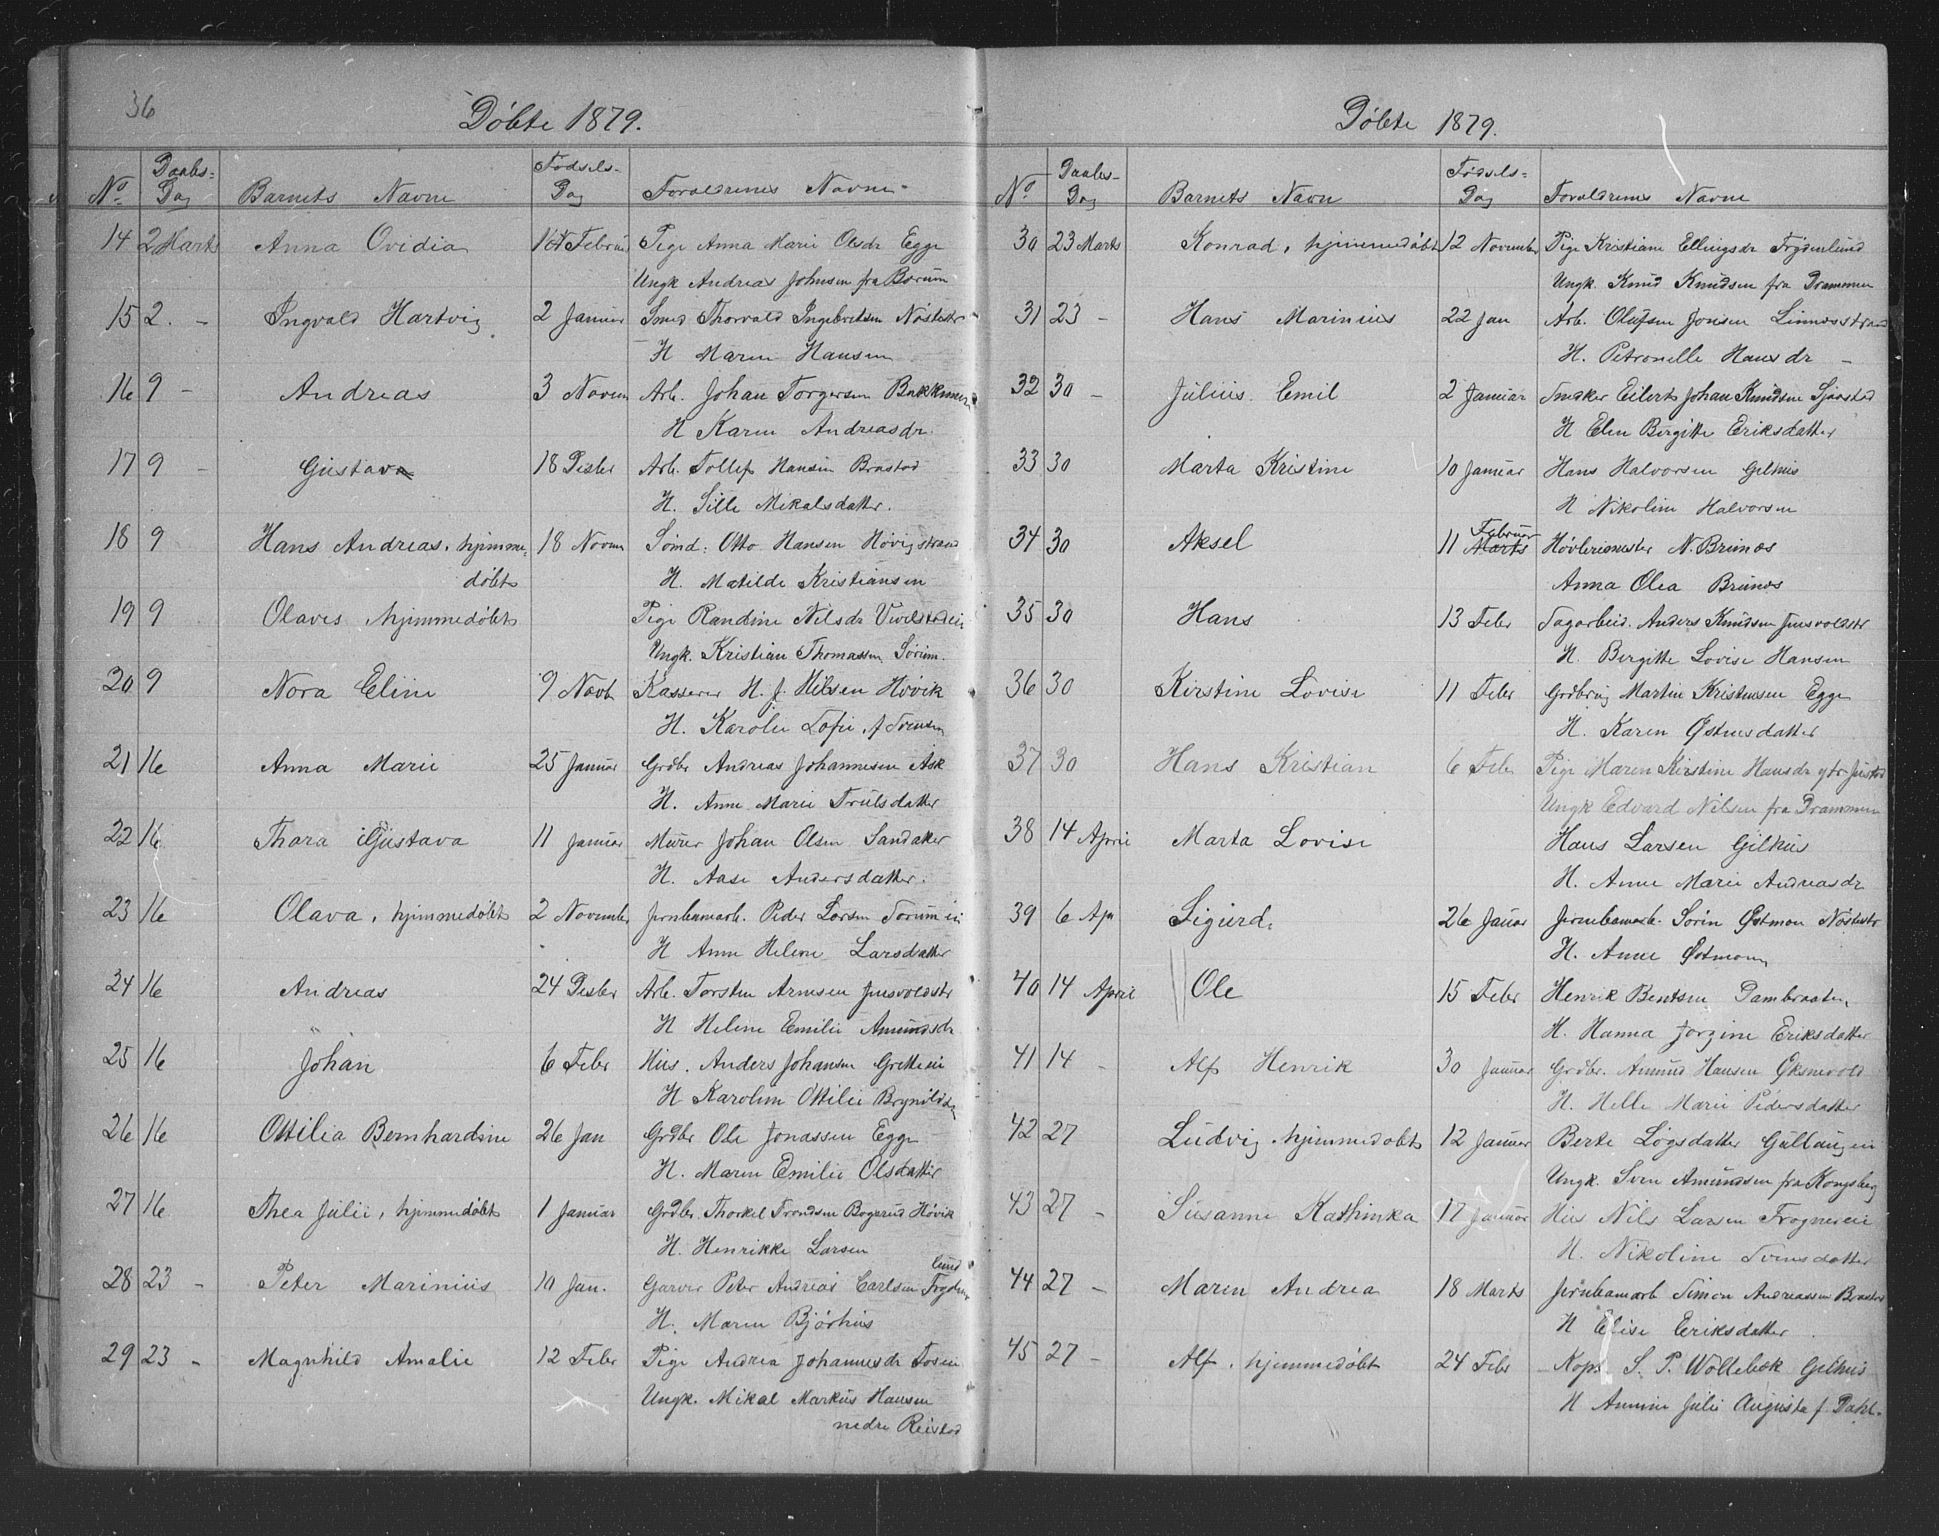 36
Döbte 1879.
No Daabs- Dag Barnets Navne Fødsels- Dag Forældrenes Navne
14 2 Marts Anna Ovidia Februar Pige Anna Marie Olsdr Egge
Ungk Andreas Johnsen fra Børum
15 2. - Ingvald Hartvig 2 Januar Smed Thorvald Ingebretsen Nøstestr
H Maren Hansen
16 9 - Andreas 3 Novem Arb. Johan Torgersen
H Karen Andreasdr.
17 9 - Gustav 18 Desbr Arb. Tollef Hansen Brastad
H. Sille Mikalsdatter.
18 9 Hans Andreas, hjemme- 18 Novem Sømd: Otto Hansen Høvigstrand
døbt H. Matilde Kristiansen
19 9 Olaves hjemmedøbt Pige Randine Nilsdr
Ungk. Kristian Thomassen Sørum.
20 9 Nora Eline 9 Novb Kasserer H. J. Nilsen Høvik
H. Karolie Sofie f Svensen
21 16 Anna Marie 25 Januar Grdbr Andreas Johannesen Ask
H. Anne Marie Trulsdatter
22 16 Thara Gustava 11 Januar Murer Johan Olsen Sandaker
H. Aase Andersdatter.
23 16 Olava, hjemmedøbt 2 Novembr Jernbanarb. Peder Larsen Sørum ei
H Anne Helene Larsdatter
24 16 Andreas 24 Desbr Arb. Torsten Arnesen Junsvoldstr
H Helene Emilie Amundsdr
25 16 Johan 6 Febr Hus. Anders Johansen Grette ei
H Karoline Ottilie Brynildsen
26 16 Ottilia Bernhardine 26 Jan Grdbr Ole Jonassen Egge
H. Maren Emilie Olsdatter
27 16 Thea Julie, hjemmedøbt 1 Januar Grdbr. Thorkel Trondsen Bogerud Høvik
H. Henrikke Larsen
28 23 - Peter Marinius 10 Jan. Garver Peter Andreas Carlsen Frydenlund
H. Maren Bjørhus
29 23 - Magnhild Amalie 12 Febr Pige Andrea Johannesdr Fosei
Ungk. Mikal Markus Hansen
nedre Reistad
Döbte 1879.
No Daabs- Dag Barnets Navn Fødsels- Dag Forældrenes Navne
30 23 Marts Konrad, hjemmedøbt 12 November Pige Kristiane Ellingsdr Frydenlund
Ungk. Knud Knudsen fra Drammen
31 23 - Hans Marinius 22 Jan Arb. Olufsen Jonsen Linnesstrand
H. Petronelle Hansdr -
32 30 - Julius Emil 2 Januar Snekker Eilert Johan Knudsen Sjaastad
H Elen Bergitte Eriksdatter
33 30 Marta Kristine 10 Januar Hans Halvorsen Gilhus
H Nikoline Halvorsen
34 30 Aksel 11 Marts Februar Høvlerimester N. Brunæs
Anna Olea Brunæs
35 30 Hans 13 Febr Sagarbeid. Anders Knudsen Junsvoldstr
H. Bergitte Lovise Hansen
36 30 Kirstine Lovise 11 Febr Grdbrug Martin Kristensen Egge
H. Karen Østensdatter
37 30 Hans Kristian 6 Febr Pige Maren Kirstine Hansdr
Ungk Edvard Nilsen fra Drammen
38 14 April Marta Lovise Hans Larsen Gilhus
H. Anne Marie Andreasdr
39 6 Ap Sigurd. 26 Januar Jernbanarb. Sørin Østmon Nøstestr
H. Anne Østmon
40 14 April Ole 15 Febr Henrik Bentsen Dambraaten
H. Hanna Jorgine Eriksdatter
41 14 - Alf Henrik 30 Januar Grdbr. Amund Hansen Øksnevold
H. Helle Marie Pedersdatter
42 27 Ludvig hjemmedøbt 12 Januar Berte Løgsdatter Gullaugei
Ungk. Sven Amundsen fra Kongsberg
43 27 - Susanne Kathinka 17 Januar Hus Nils Larsen Frognerei
H. Nikoline Svensdatter
44 27 - Maren Andrea 18 Marts Jernbanarb Simon Andreassen Brastad
H Elise Eriksdatter
45 27 - Alf, hjemmedøbt 24 Febr Kopr. S. P. Woltebæk Gilhus
H Annine Julie Augusta f. Dahl.